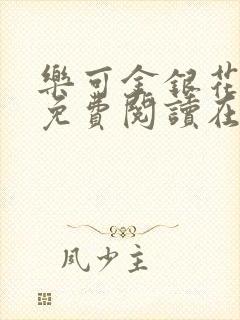 樂可金銀花
免費閱讀在
風少主